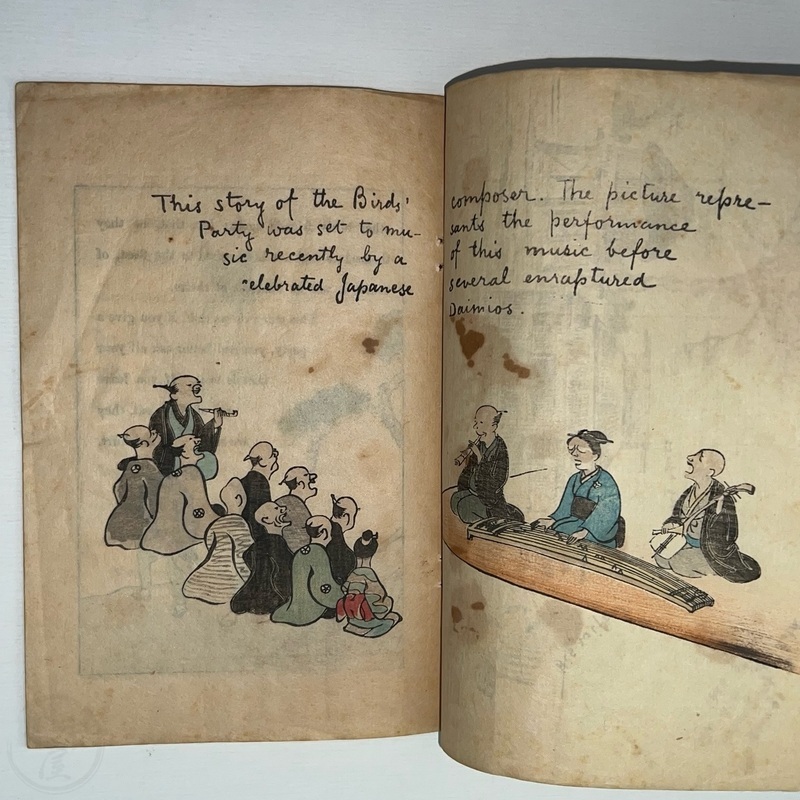 This story of the Birds'
Party was set to mu-
sic recently by a
celebrated Japanese
composer. The picture repre-
sants the performance
of this music before
several enraptured
Daimios.